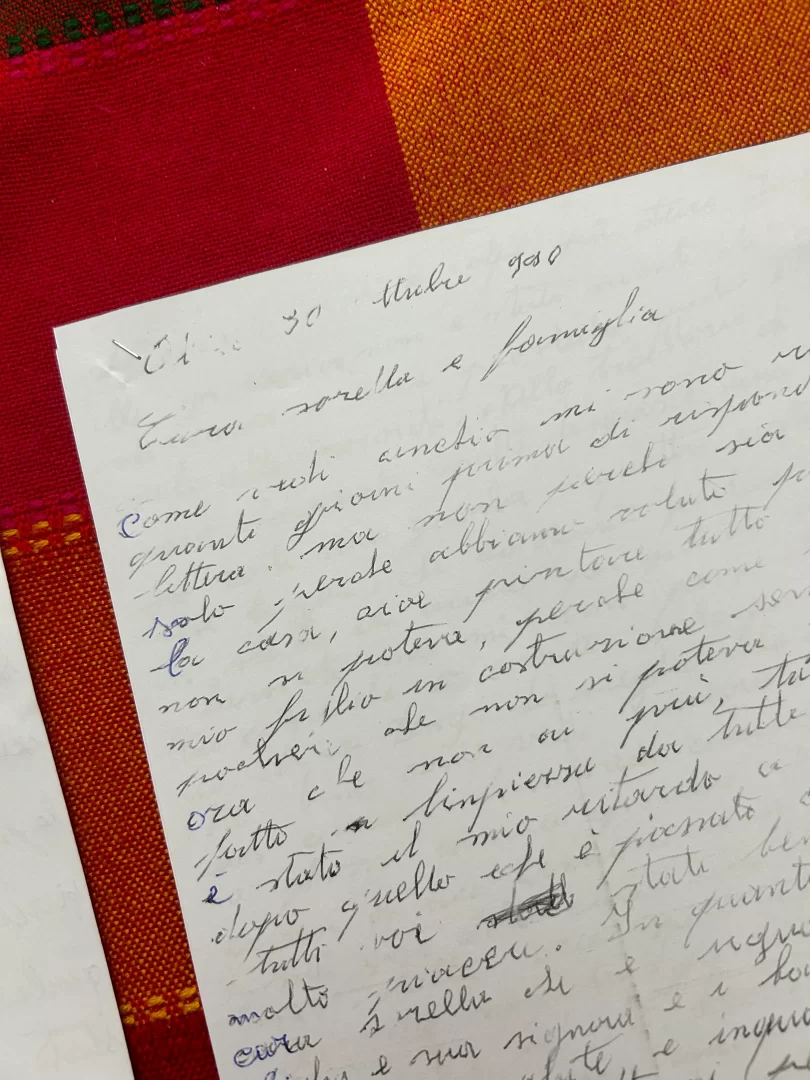 30 ttrobre 980
Cara sorella e famiglia
come vedi anchio mi sono
quanti giorni prima di rispond
lettera. ma non perche sia
solo perche abbiamo voluto
la casa, cioe pintare tutto
non si poteva, perche come
mio figlio in costruzione sem
polvere che non si poteva
ora che non ce piu, tu
fatto limpiezza da tutte
è stato il mio ritardo a
dopo quello che è passato
tutti voi stati ben
molto piacere. In quanto
cara srella che e
e sua signora e i
e